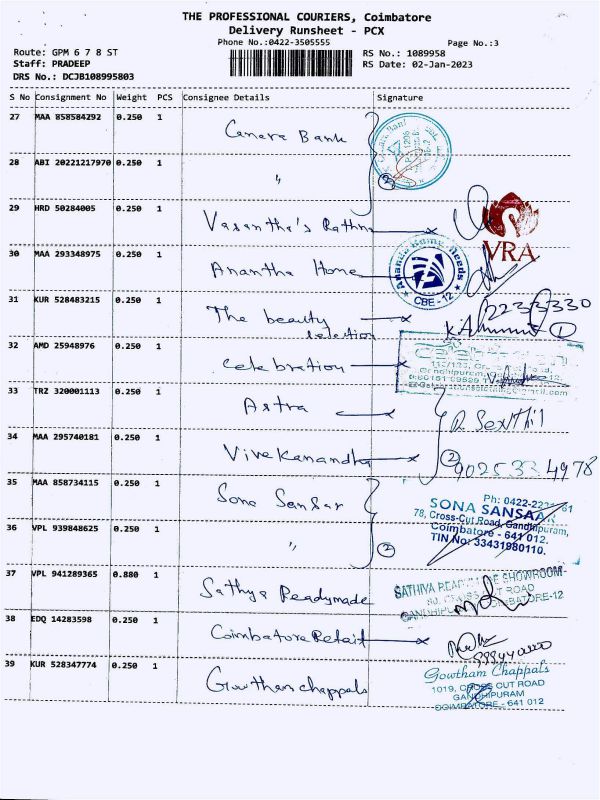 THE PROFESSIONAL COURIERS, Coimbatore
Delivery Runsheet - PCX
Phone No.:0422-3505555
Page No.:3
Route: GPM 6 7 8 ST
RS No.: 1089958
Staff: PRADEEP
RS Date: 02-Jan-2023
DRS No.: DCJB108995803
S No Consignment No Weight PCS Consignee Details Signature
27 MAA 858584292 0.250 1 Canara Bank
28 ABI 20221217970 0.250 1 "
2
29 HRD 50284005 0.250 1 Vasantha's Rathna
VRA
30 MAA 293348975 0.250 1 Anantha Home
Ananda Home Needs
CBE - 12
31 KUR 528483215 0.250 1 The beauty
selection
1
32 AMD 25948976 0.250 1 Celebration
33 TRZ 320001113 0.250 1 Astra
R. Senthil
34 MAA 295740181 0.250 1 Vivekanandha
2 9025334978
35 MAA 858734115 0.250 1 Sona Sansar
Ph: 0422-
SONA SANSAAR
78, Cross-Cut Road, Gandhipuram,
Coimbatore - 641 012.
TIN No: 33431980110.
36 VPL 939848625 0.250 1 "
2
37 VPL 941289365 0.880 1 Sathya Readymade
SATHIYA READYMADE SHOWROOM
38 EDQ 14283598 0.250 1 Coimbatore Retail
39 KUR 528347774 0.250 1 Gowthamchappals
Gowtham Chappals
1019, CROSS CUT ROAD
GANDHIPURAM
COIMBATORE - 641 012